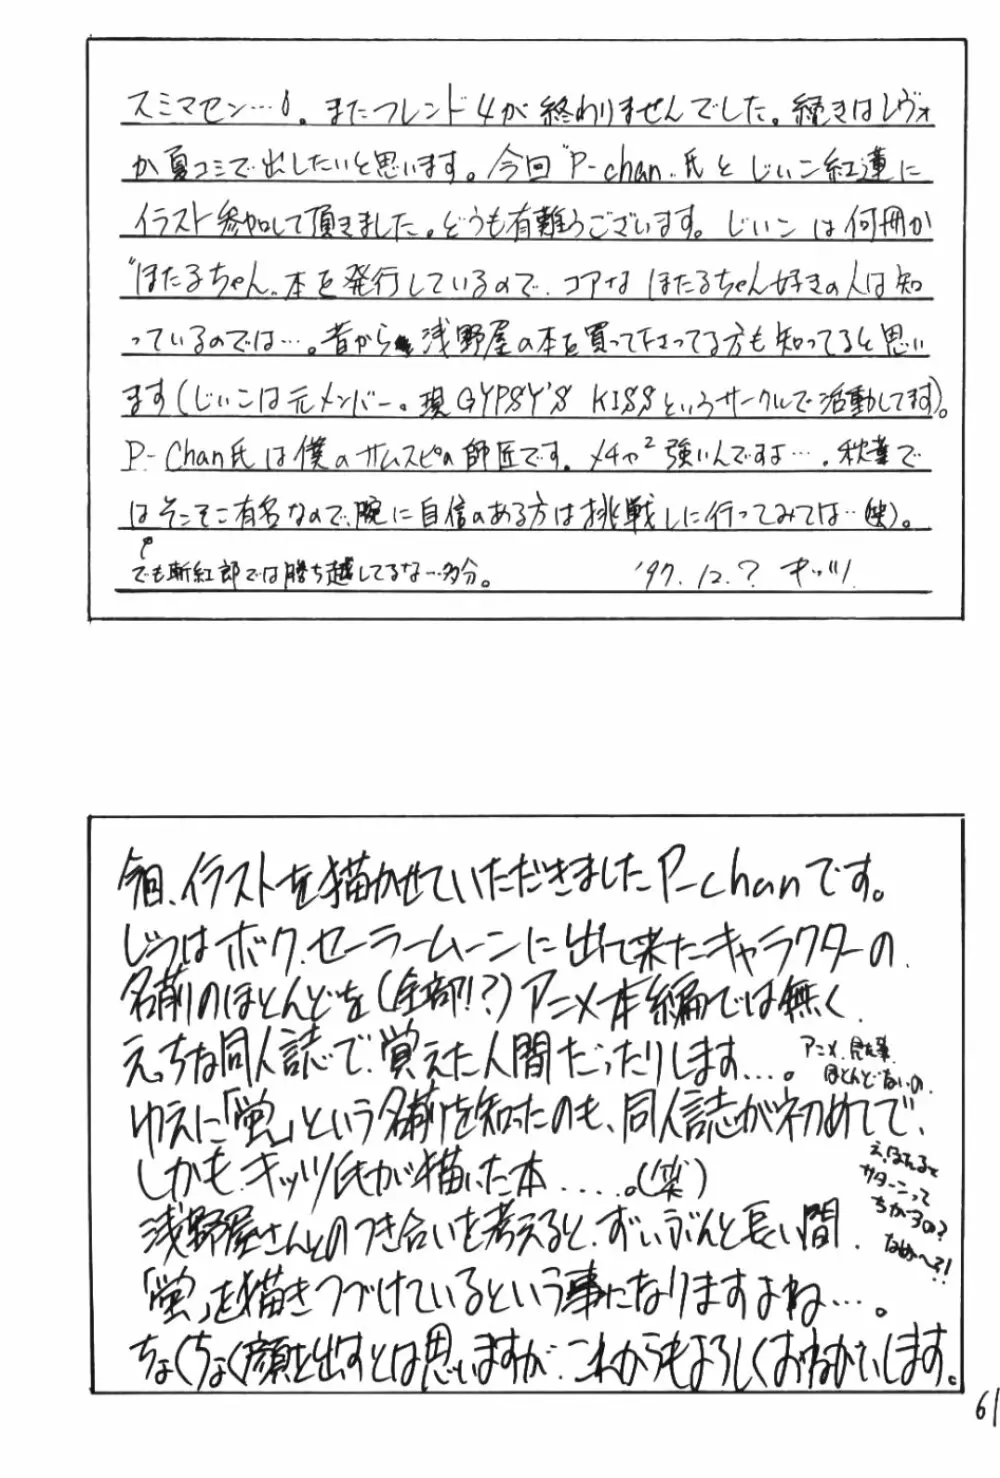 スミマセン…。またフレンド4が終わりませんでした。続きはレヴォ
か夏コミで出したいと思います。今回"P-chan"氏とじぃこ紅蓮に
イラスト参加して頂きました。どうも有難うございます。じぃこは何冊か
"ほたるちゃん"本を発行しているので、コアなほたるちゃん好きの人は知
っているのでは…。昔から浅野屋の本を買って下さってる方も知ってると思い
ます(じぃこは元メンバー。現GYPSY'S KISSというサークルで活動してます)。
P-Chan氏は僕のサムスピの師匠です。メチャ²強いんですよ…。秋葉で
はそこそこ有名なので、腕に自信のある方は挑戦しに行ってみては…(笑)。
でも斬紅郎では勝ち越してるな…多分。 '97.12.? キッツ!
今回、イラストを描かせていただきましたP-chanです。
じつはボク、セーラームーンに出て来たキャラクターの
名前のほとんどを(全部!?)アニメ本編では無く
えっちな同人誌で、覚えた人間だったりします…。
アニメ、見た事
ほとんどないの
ゆえに「蛍」という名前を知ったのも、同人誌が初めてで、
しかもキッツ氏が描いた本……。(笑)
え、ほたると
サターンって
ちがーうの?
なめへ?!
浅野屋さんとのつき合いを考えると、ずいぶんと長い間、
「蛍」を描きつづけているという事になりますよね…。
ちょくちょく顔を出すとは思いますが、これからもよろしくおねがいします。
61